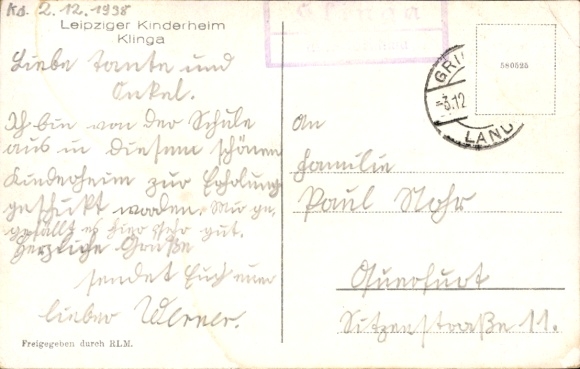 Ks. 2.12.1938
Leipziger Kinderheim
Klinga
Liebe Tante und
Onkel.
Ich bin von der Schule
aus in diesem schönen
Kinderheim zur Erholung
geschikt worden. Mir ge-
gefällt es hier sehr gut.
Herzliche Grüße
sendet Euch euer
lieber Werner.
Freigegeben durch RLM.
Klinga
GRI
-3.12
LAND
580525
An
Familie
Paul Nohr
Querfurt
Sitzenstraße 11.